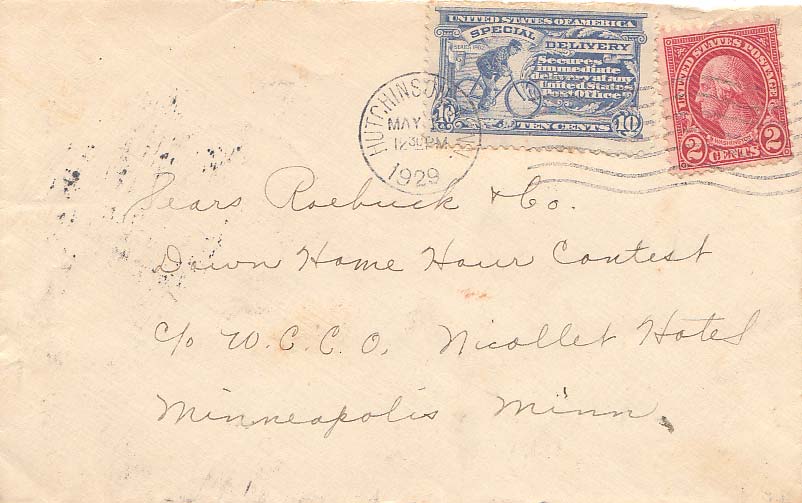 UNITED STATES OF AMERICA
SPECIAL DELIVERY
SERIES 1902
Secures
immediate
delivery at any
United States
Post Office
10 TEN CENTS 10
UNITED STATES POSTAGE
WASHINGTON
2 CENTS 2
HUTCHINSON
MAY
12 30 PM
1929
Sears Roebuck & Co.
Down Home Hour Contest
c/o W.C.C.O. Nicollet Hotel
Minneapolis Minn.